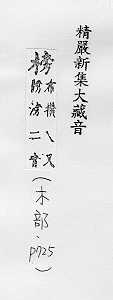 精嚴新集大藏音
榜
布橫乀又
防滂二音
(木部·p725)